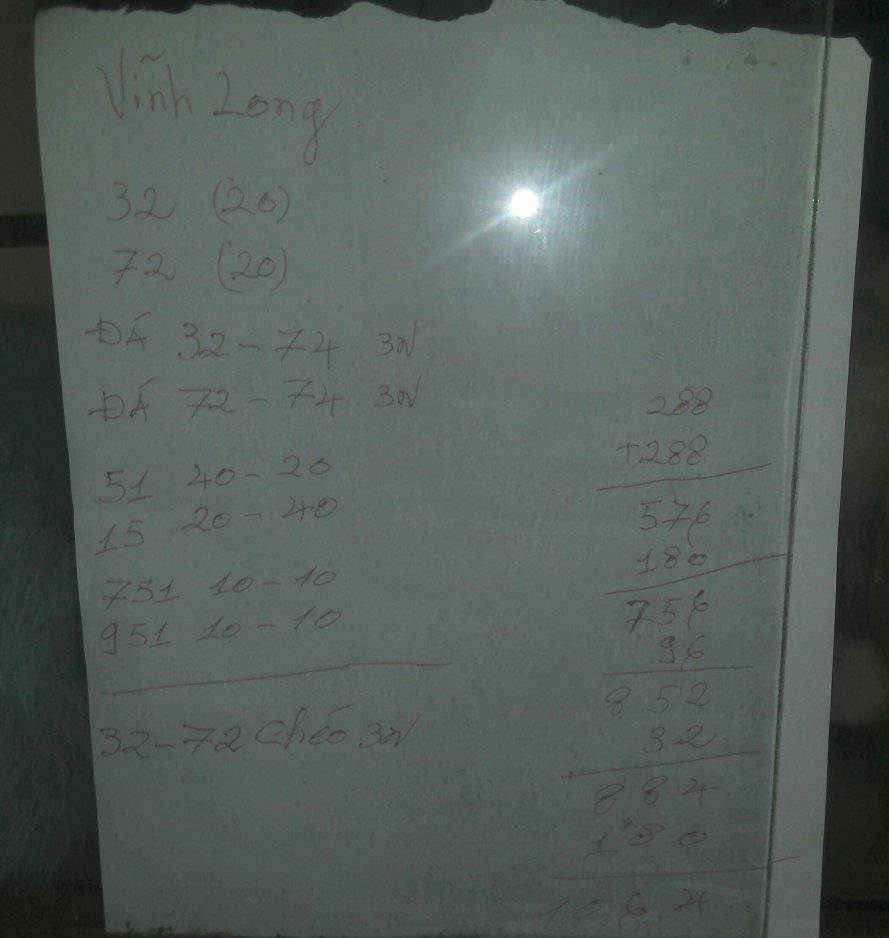 Vĩnh Long
32 (20)
72 (20)
ĐÁ 32-74 3N
ĐÁ 72-74 3N
51 40-20
15 20-40
751 10-10
951 10-10
32-72 Chéo 3N
288
+288
576
180
756
96
852
32
884
180
1064